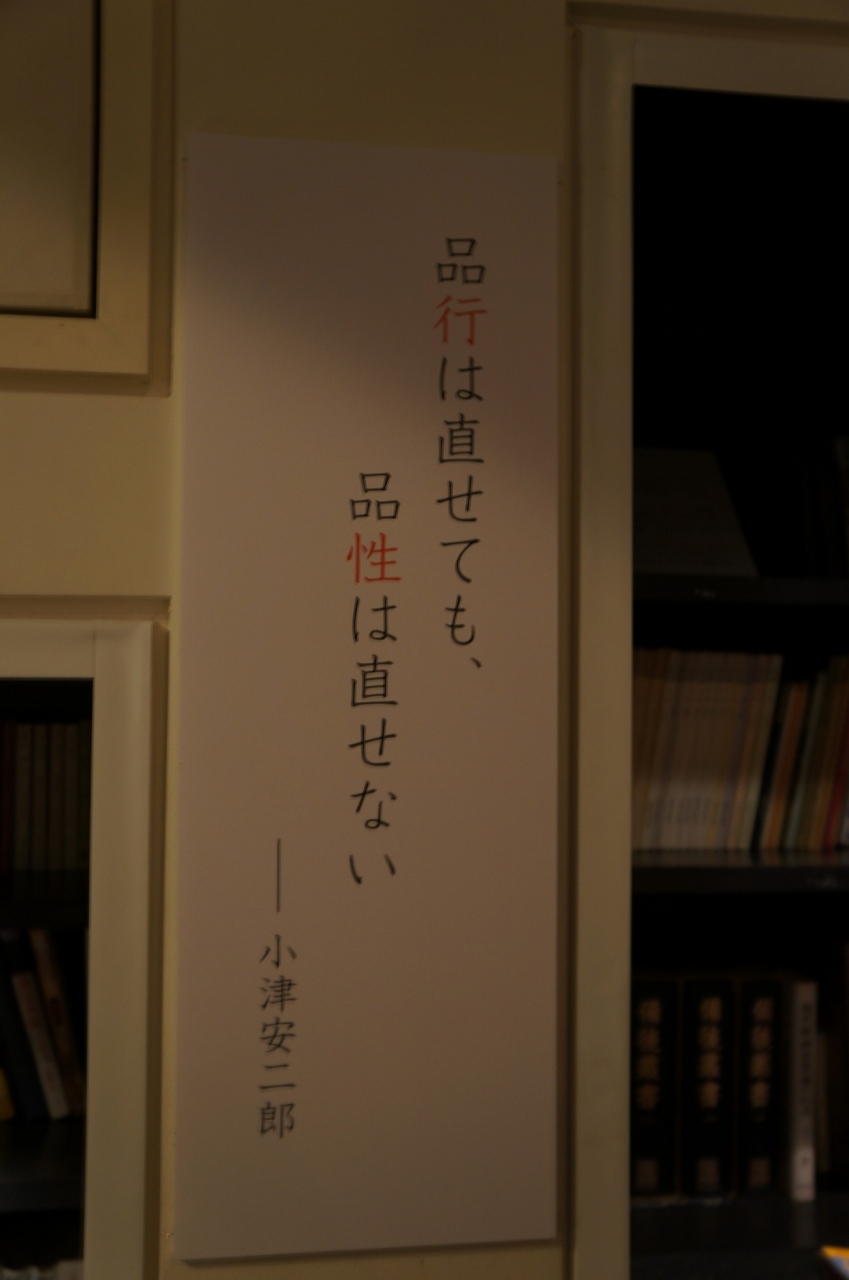 品行は直せても、
品性は直せない
── 小津安二郎